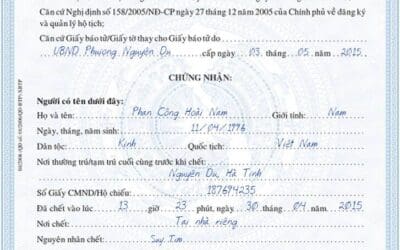 Căn cứ Nghị định số 158/2005/NĐ-CP ngày 27 tháng 12 năm 2005 của Chính phủ về đăng ký
và quản lý hộ tịch;
Căn cứ Giấy báo tử/Giấy tờ thay cho Giấy báo tử do
UBND Phường Nguyễn Du cấp ngày 03 tháng 05 năm 2015
CHỨNG NHẬN:
Người có tên dưới đây:
Họ và tên: Phan Công Hoài Nam Giới tính: Nam
Ngày, tháng, năm sinh: 11/04/1976
Dân tộc: Kinh Quốc tịch: Việt Nam
Nơi thường trú/tạm trú cuối cùng trước khi chết:
Nguyễn Du, Hà Tĩnh
Số Giấy CMND/Hộ chiếu: 187674235
Đã chết vào lúc 13 giờ 23 phút, ngày 30 tháng 04 năm 2015
Nơi chết: Tại nhà riêng
Nguyên nhân chết: Suy Tim